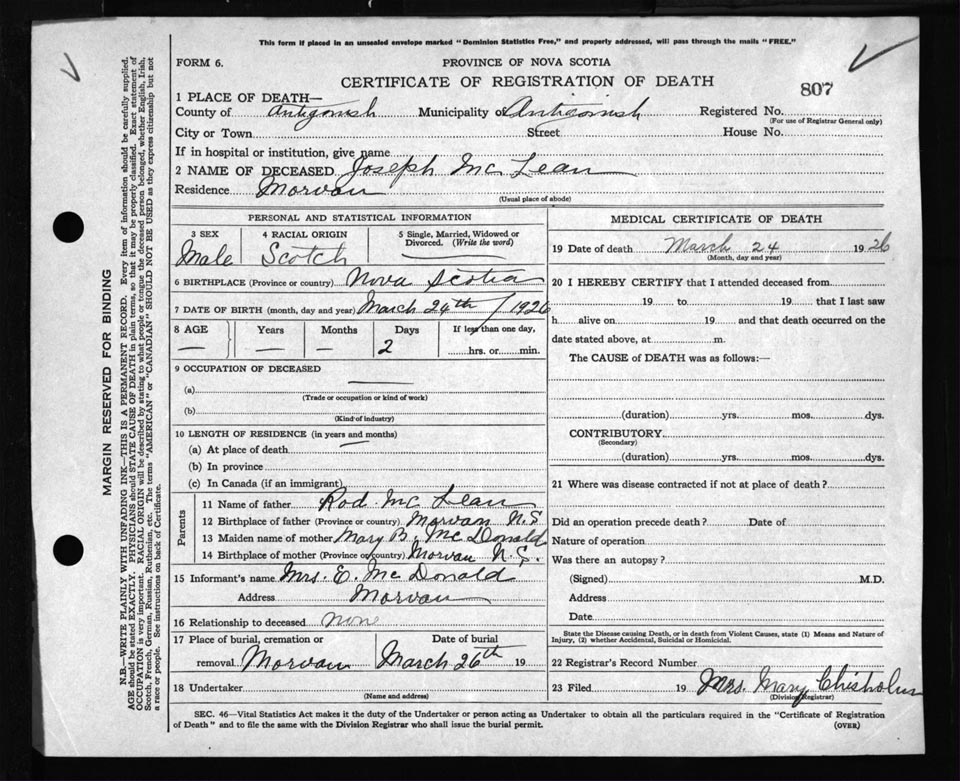 This form if placed in an unsealed envelope marked "Dominion Statistics Free," and properly addressed, will pass through the mails "FREE."
FORM 6.
PROVINCE OF NOVA SCOTIA
CERTIFICATE OF REGISTRATION OF DEATH
807
1 PLACE OF DEATH—
County of Antigonish Municipality of Antigonish Registered No.
(For use of Registrar General only)
City or Town Street House No.
If in hospital or institution, give name
2 NAME OF DECEASED Joseph Mc Lean
Residence Morvan
(Usual place of abode)
PERSONAL AND STATISTICAL INFORMATION
3 SEX 4 RACIAL ORIGIN 5 Single, Married, Widowed or Divorced. (Write the word)
Male Scotch —
6 BIRTHPLACE (Province or country) Nova Scotia
7 DATE OF BIRTH (month, day and year) March 24th / 1926
8 AGE Years Months Days If less than one day,
— — — 2 hrs. or min.
9 OCCUPATION OF DECEASED
—
(a)
(Trade or occupation or kind of work)
(b)
(Kind of industry)
10 LENGTH OF RESIDENCE (in years and months)
(a) At place of death —
(b) In province
(c) In Canada (if an immigrant)
Parents
11 Name of father Rod. Mc Lean
12 Birthplace of father (Province or country) Morvan N.S
13 Maiden name of mother Mary B. McDonald
14 Birthplace of mother (Province or country) Morvan N.S.
15 Informant's name Mrs. E. McDonald
Address Morvan
16 Relationship to deceased None
17 Place of burial, cremation or Date of burial
removal Morvan March 26th 19
18 Undertaker
(Name and address)
MEDICAL CERTIFICATE OF DEATH
19 Date of death March 24 1926
(Month, day and year)
20 I HEREBY CERTIFY that I attended deceased from
19 to 19 that I last saw
h alive on 19 and that death occurred on the
date stated above, at m.
The CAUSE of DEATH was as follows:—
(duration) yrs. mos. dys.
CONTRIBUTORY
(Secondary)
(duration) yrs. mos. dys.
21 Where was disease contracted if not at place of death?
Did an operation precede death? Date of
Nature of operation
Was there an autopsy?
(Signed) M.D.
Address
Date
State the Disease causing Death, or in death from Violent Causes, state (1) Means and Nature of
Injury, (2) whether Accidental, Suicidal or Homicidal.
22 Registrar's Record Number
23 Filed 19 Mrs. Mary Chisholm
(Division Registrar)
SEC. 46—Vital Statistics Act makes it the duty of the Undertaker or person acting as Undertaker to obtain all the particulars required in the "Certificate of Registration
of Death" and to file the same with the Division Registrar who shall issue the burial permit.
(OVER)
MARGIN RESERVED FOR BINDING
N.B.—WRITE PLAINLY WITH UNFADING INK—THIS IS A PERMANENT RECORD. Every item of information should be carefully supplied.
AGE should be stated EXACTLY. PHYSICIANS should STATE CAUSE OF DEATH in plain terms, so that it may be properly classified. Exact statement of
OCCUPATION is very important. RACIAL ORIGIN will be described by stating to what people or tongue the deceased person belonged, whether English, Irish,
Scotch, French, German, Russian, Ruthenian, etc. The terms "AMERICAN" or "CANADIAN" SHOULD NOT BE USED as they express citizenship but not
a race or people. See instructions on back of Certificate.